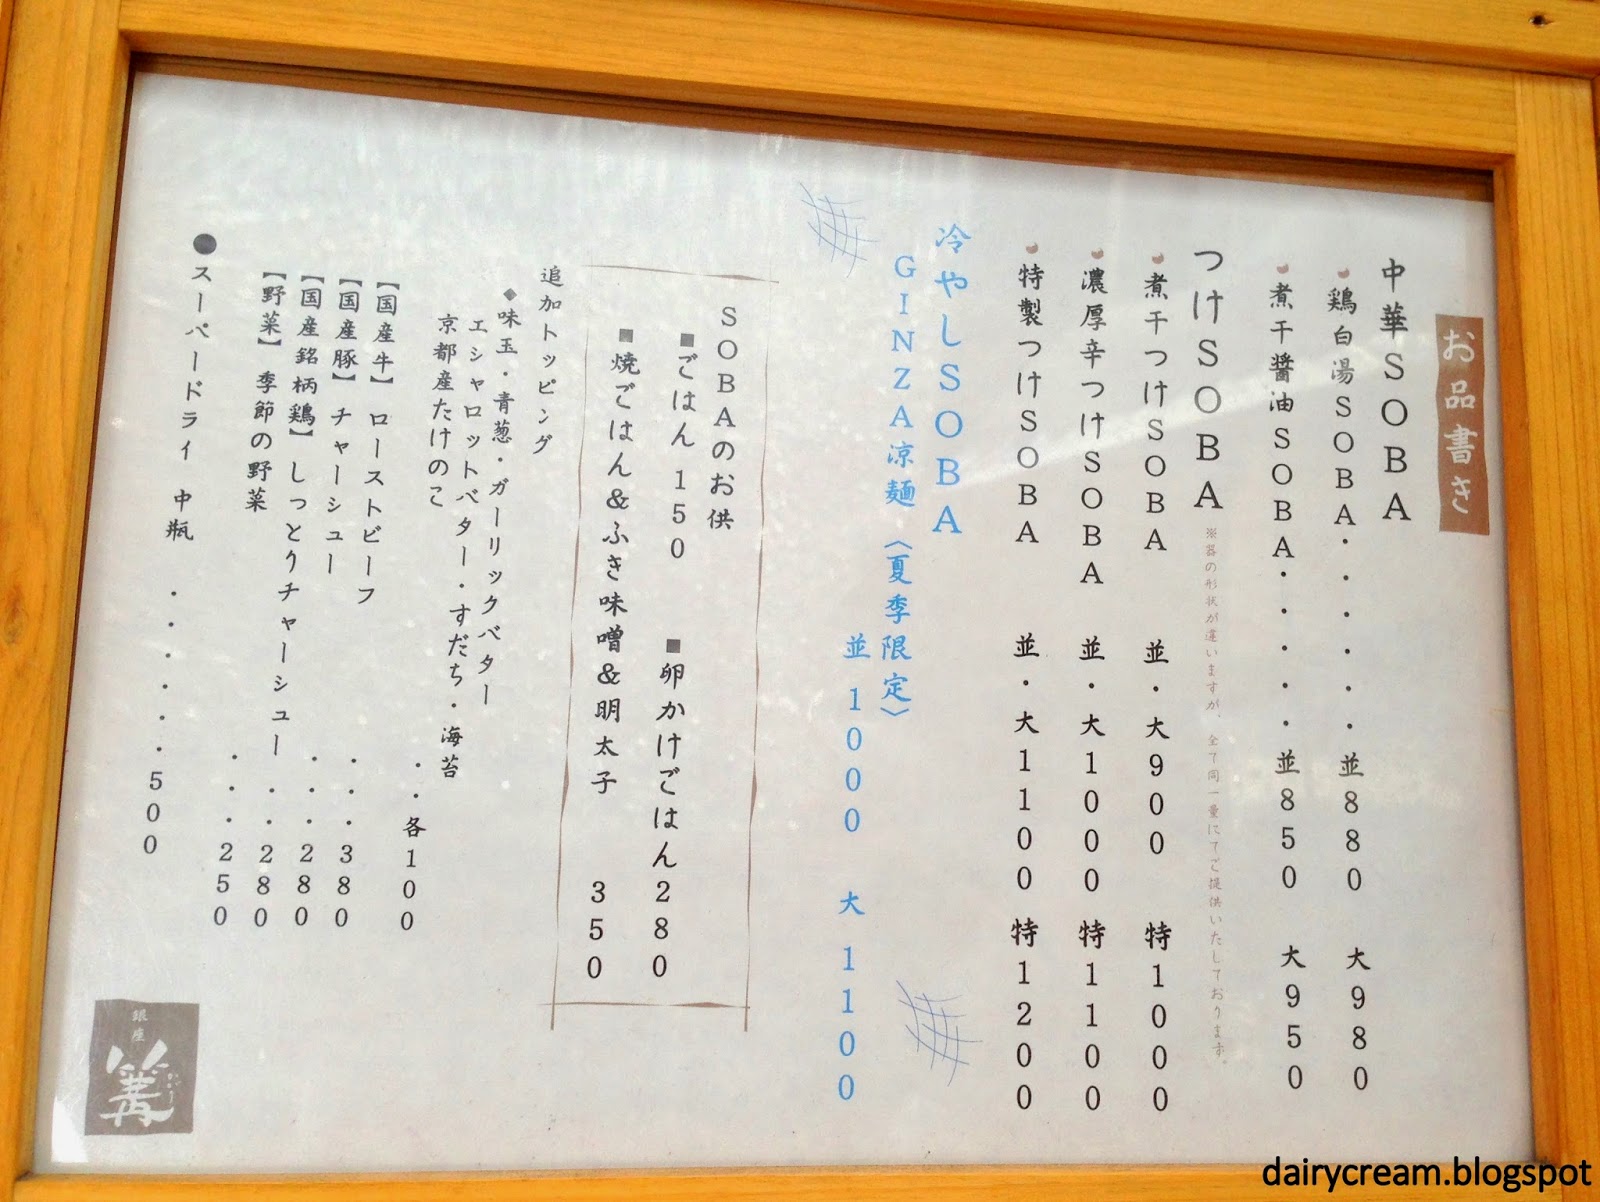 お品書き
中華SOBA
鶏白湯SOBA・・・・・・並880 大980
煮干醤油SOBA・・・・・並850 大950
つけSOBA ※器の形状が違いますが、全て同一量にてご提供いたしております。
煮干つけSOBA 並・大900 特1000
濃厚辛つけSOBA 並・大1000 特1100
特製つけSOBA 並・大1100 特1200
冷やしSOBA
GINZA涼麺〈夏季限定〉
並 1000 大 1100
SOBAのお供
■ごはん 150 ■卵かけごはん280
■焼ごはん&ふき味噌&明太子 350
追加トッピング
◆味玉・青葱・ガーリックバター
エシャロットバター・すだち・海苔
京都産たけのこ ・・各100
【国産牛】ローストビーフ ・・・380
【国産豚】チャーシュー ・・・280
【国産銘柄鶏】しっとりチャーシュー ・・280
【野菜】季節の野菜 ・・・250
●スーパードライ 中瓶 ・・・・・・500
銀座
篝
かがり
dairycream.blogspot